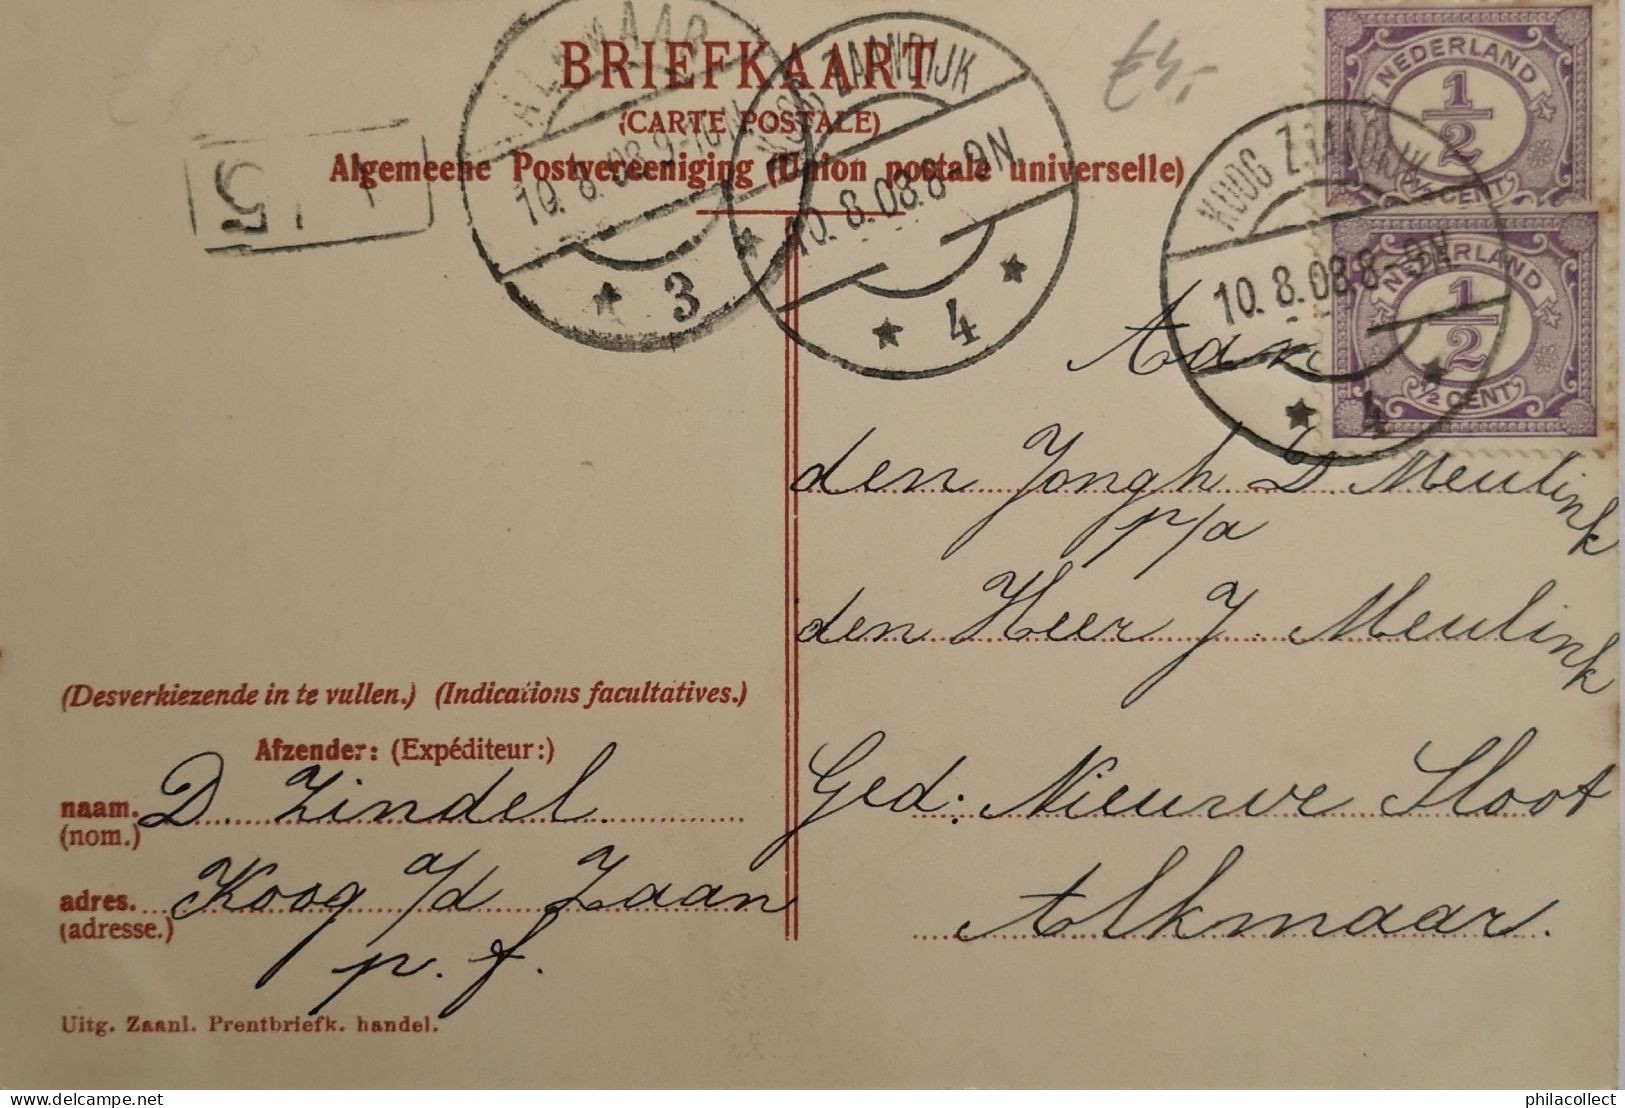 BRIEFKAART
(CARTE POSTALE)
Algemeene Postvereeniging (Union postale universelle)
£4,-
5
ALKMAAR
10.8.08.9-10N
3
KOOG ZAANDIJK
10.8.08.8-9N
4
KOOG ZAANDIJK
10.8.08.8-9N
4
NEDERLAND
1/2
1/2 CENT
NEDERLAND
1/2
1/2 CENT
Aan
den Jongh. D. Meulink
p/a
den Heer J. Meulink
Ged: Nieuwe Sloot
Alkmaar.
(Desverkiezende in te vullen.) (Indications facultatives.)
Afzender: (Expéditeur:)
naam. D. Zindel.
(nom.)
adres. Koog a/d Zaan
(adresse.)
p. f.
Uitg. Zaanl. Prentbriefk. handel.
delcampe.net
philacollect